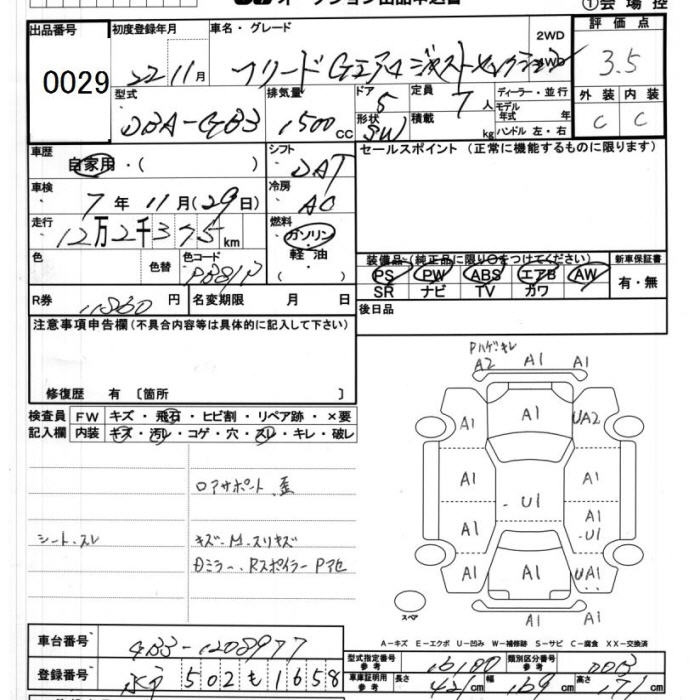 ①会場控
出品番号 初度登録年月 車名・グレード 2WD 評価点
0029 22 11月 フリード Gエアロ ジャストセレクション 4WD 3.5
型式 排気量 ドア 定員 ディーラー・並行 外装 内装
DBA-GB3 1500CC 5 7人 モデル年式 年 C C
形状 SW 積載 kg ハンドル 左・右
車歴 シフト セールスポイント (正常に機能するものに限ります)
自家用・( ) DAT
車検 冷房
7年 11月(29日) AC
走行 燃料
12万2千375km ガソリン・軽油・( )
色 色替 色コード 装備品(純正品に限り○をつけてください) 新車保証書
PS PW ABS エアB AW 有・無
SR ナビ TV カワ
R券 11860円 名変期限 月 日 後日品
注意事項申告欄(不具合内容等は具体的に記入して下さい)
Pハゲ・キレ
A2 A1 A1
修復歴 有 [箇所 ]
検査員 FW キズ・飛石・ヒビ割・リペア跡・×要
記入欄 内装 キズ・汚レ・コゲ・穴・スレ・キレ・破レ
A1 A1 UA2
A1 A1
U1
A1 A1 U1
A1 A1 UA1
ロアサポート 歪
シート・スレ キズ・M・スリキズ
Dミラー、Rスポイラー Pアセ
スペア
A-キズ E-エクボ U-凹み W-補修跡 S-サビ C-腐食 XX-交換済
車台番号 GB3-1208977
登録番号 502 も 1658
型式指定番号 参考 16180 類別区分番号 参考
車庫証明用 参考 長さ 421cm 幅 169cm 高さ 171cm